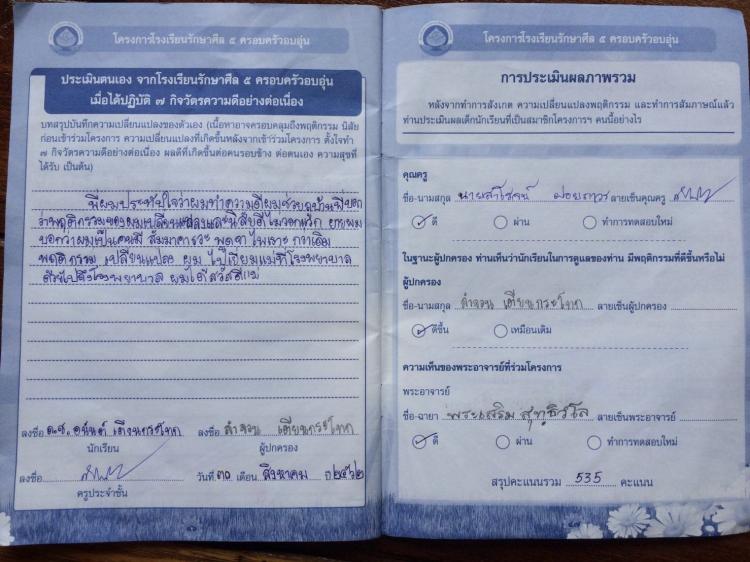 โครงการโรงเรียนรักษาศีล ๕ ครอบครัวอบอุ่น
ประเมินตนเอง จากโรงเรียนรักษาศีล ๕ ครอบครัวอบอุ่น
เมื่อได้ปฏิบัติ ๗ กิจวัตรความดีอย่างต่อเนื่อง
บทสรุปบันทึกความเปลี่ยนแปลงของตัวเอง (เนื้อหาอาจครอบคลุมถึงพฤติกรรม นิสัย
ก่อนเข้าร่วมโครงการ ความเปลี่ยนแปลงที่เกิดขึ้นหลังจากเข้าร่วมโครงการ ตั้งใจทำ
๗ กิจวัตรความดีอย่างต่อเนื่อง ผลดีที่เกิดขึ้นต่อคนรอบข้าง ต่อตนเอง ความสุขที่
ได้รับ เป็นต้น)
ที่ผมประทับใจว่าผมทำความดีผมช่วย
ว่าพฤติกรรมของผมเปลี่ยนแปลงและนิสัยดีไม่วอกแวก ยายผม
บอกว่าผมเป็นคนมี สัมมาคารวะ พูดจา ไพเราะ กว่าเดิม
พฤติกรรม เปลี่ยนแปลง ผม ไปเยี่ยมแม่ที่โรงพยาบาล
โรงพยาบาล ผมได้สวัสดีแม่
ลงชื่อ ด.ช. อนันต์
ลงชื่อ ลำจวน เตียนกระโทก
นักเรียน
ผู้ปกครอง
ลงชื่อ
วันที่ ๓๐ เดือน สิงหาคม ปี ๒๕๖๒
ครูประจำชั้น
โครงการโรงเรียนรักษาศีล ๕ ครอบครัวอบอุ่น
การประเมินผลภาพรวม
หลังจากทำการสังเกต ความเปลี่ยนแปลงพฤติกรรม และทำการสัมภาษณ์แล้ว
ท่านประเมินผลเด็กนักเรียนที่เป็นสมาชิกโครงการฯ คนนี้อย่างไร
คุณครู
ชื่อ-นามสกุล นายสาโรจน์ ฝอยถาวร ลายเซ็นคุณครู
ดี ผ่าน ทำการทดสอบใหม่
ในฐานะผู้ปกครอง ท่านเห็นว่านักเรียนในการดูแลของท่าน มีพฤติกรรมที่ดีขึ้นหรือไม่
ผู้ปกครอง
ชื่อ-นามสกุล ลำจวน เตียนกระโทก ลายเซ็นผู้ปกครอง
ดีขึ้น เหมือนเดิม
ความเห็นของพระอาจารย์ที่ร่วมโครงการ
พระอาจารย์
ชื่อ-ฉายา พระเสริม สุทฺธิวโส ลายเซ็นพระอาจารย์
ดี ผ่าน ทำการทดสอบใหม่
สรุปคะแนนรวม 535 คะแนน